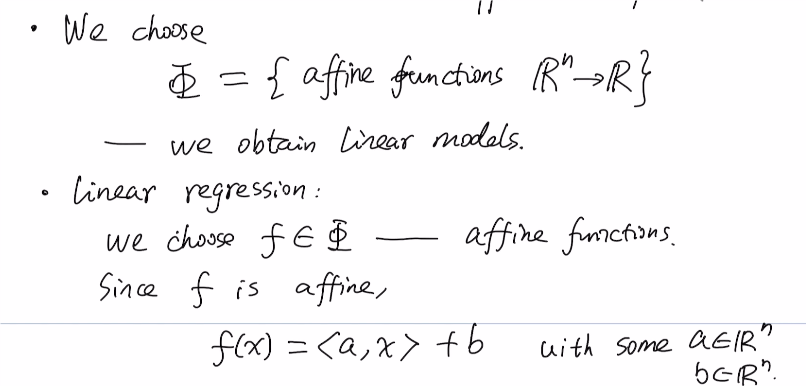 • We choose
Φ = { affine functions ℝⁿ→ℝ}
— we obtain linear models.
• linear regression:
we choose f ∈ Φ — affine functions.
Since f is affine,
f(x) = <a, x> + b with some a∈ℝⁿ
b∈ℝⁿ.